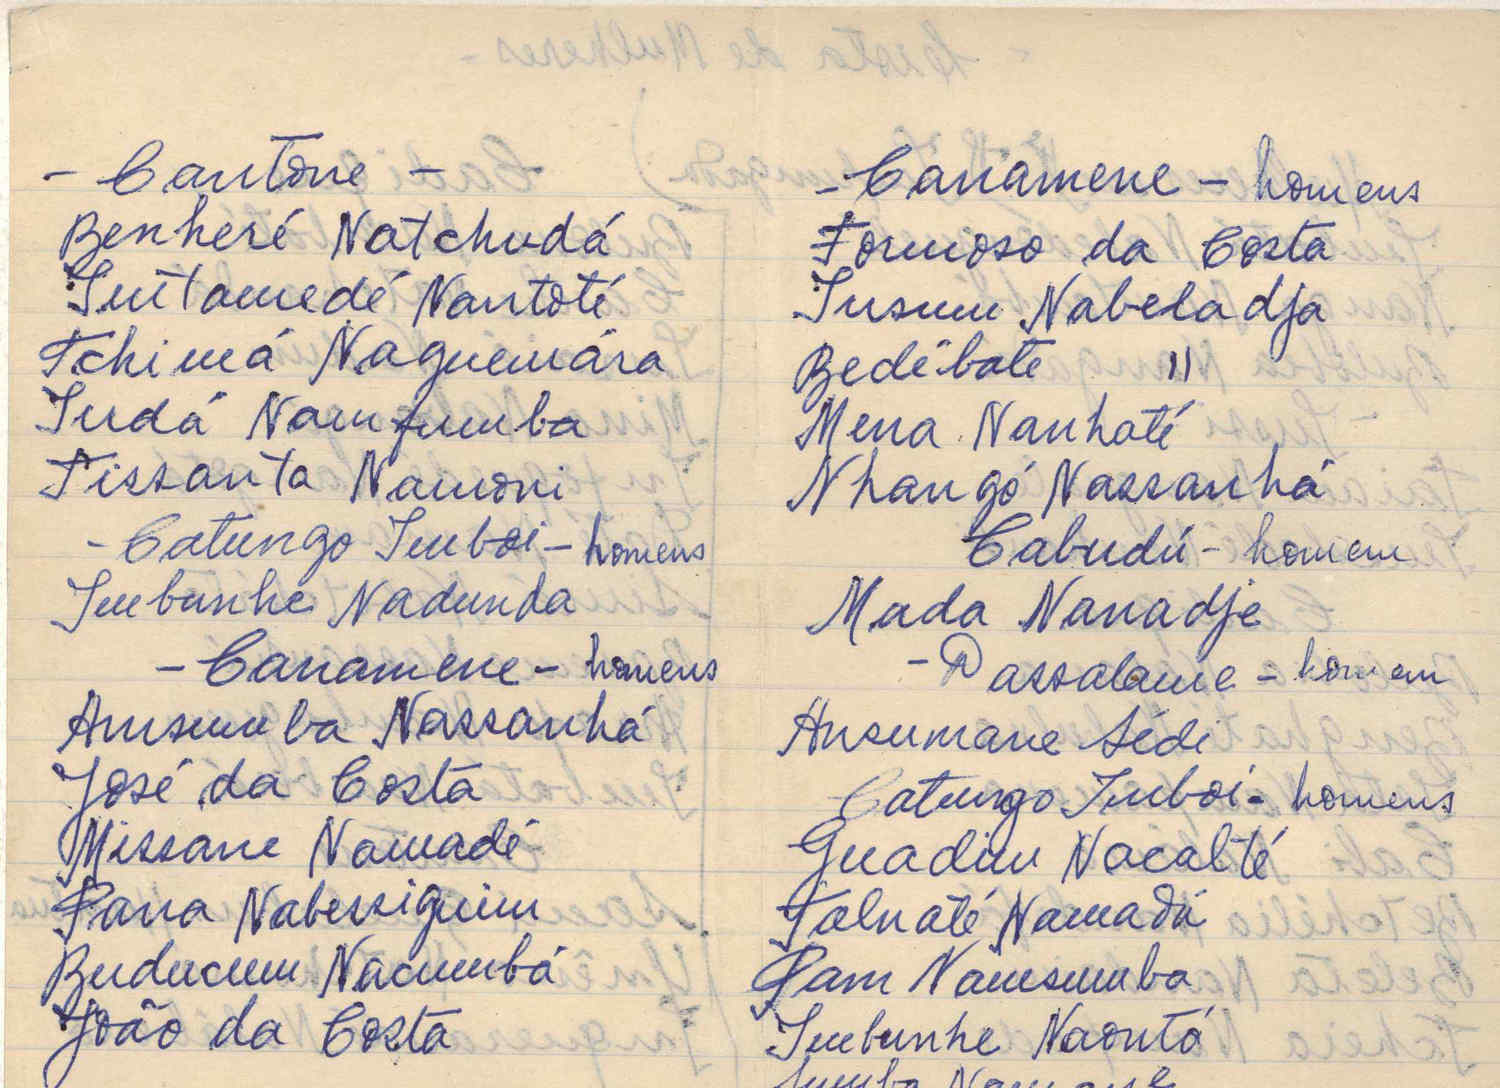 - Cantone -
Benheré Natchudá
Intamedé Nantoté
Tchimá Naguemára
Indá Namfumba
Tissanta Namoni
- Catungo Imboi - homens
Imbunhe Nadunda
- Canamene - homens
Amsumba Nassanhá
José da Costa
Missane Namadé
Pana Nabessiguim
Buducum Nacumbá
João da Costa
- Canamene - homens
Formoso da Costa
Insum Nabeladja
Bedébate 11
Mena Nanhaté
Nhangó Nassanhá
Cabudú - homem
Mada Nanadje
- Passalame - homem
Ansumane Sédi
Catungo Imboi - homens
Guadim Nacalté
Talnaté Namadú
Pam Namsumba
Imbunhe Naontó